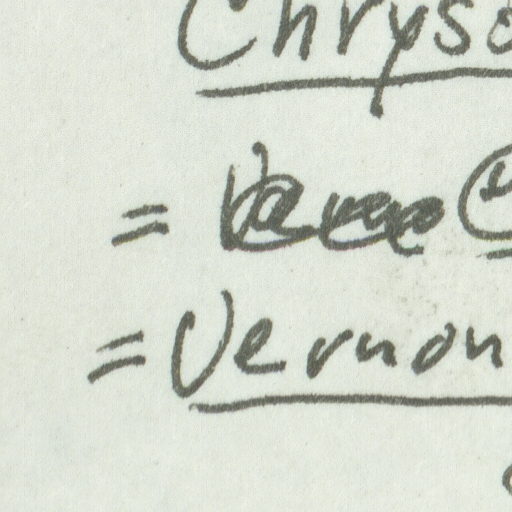 Chryso
=
= Vernon